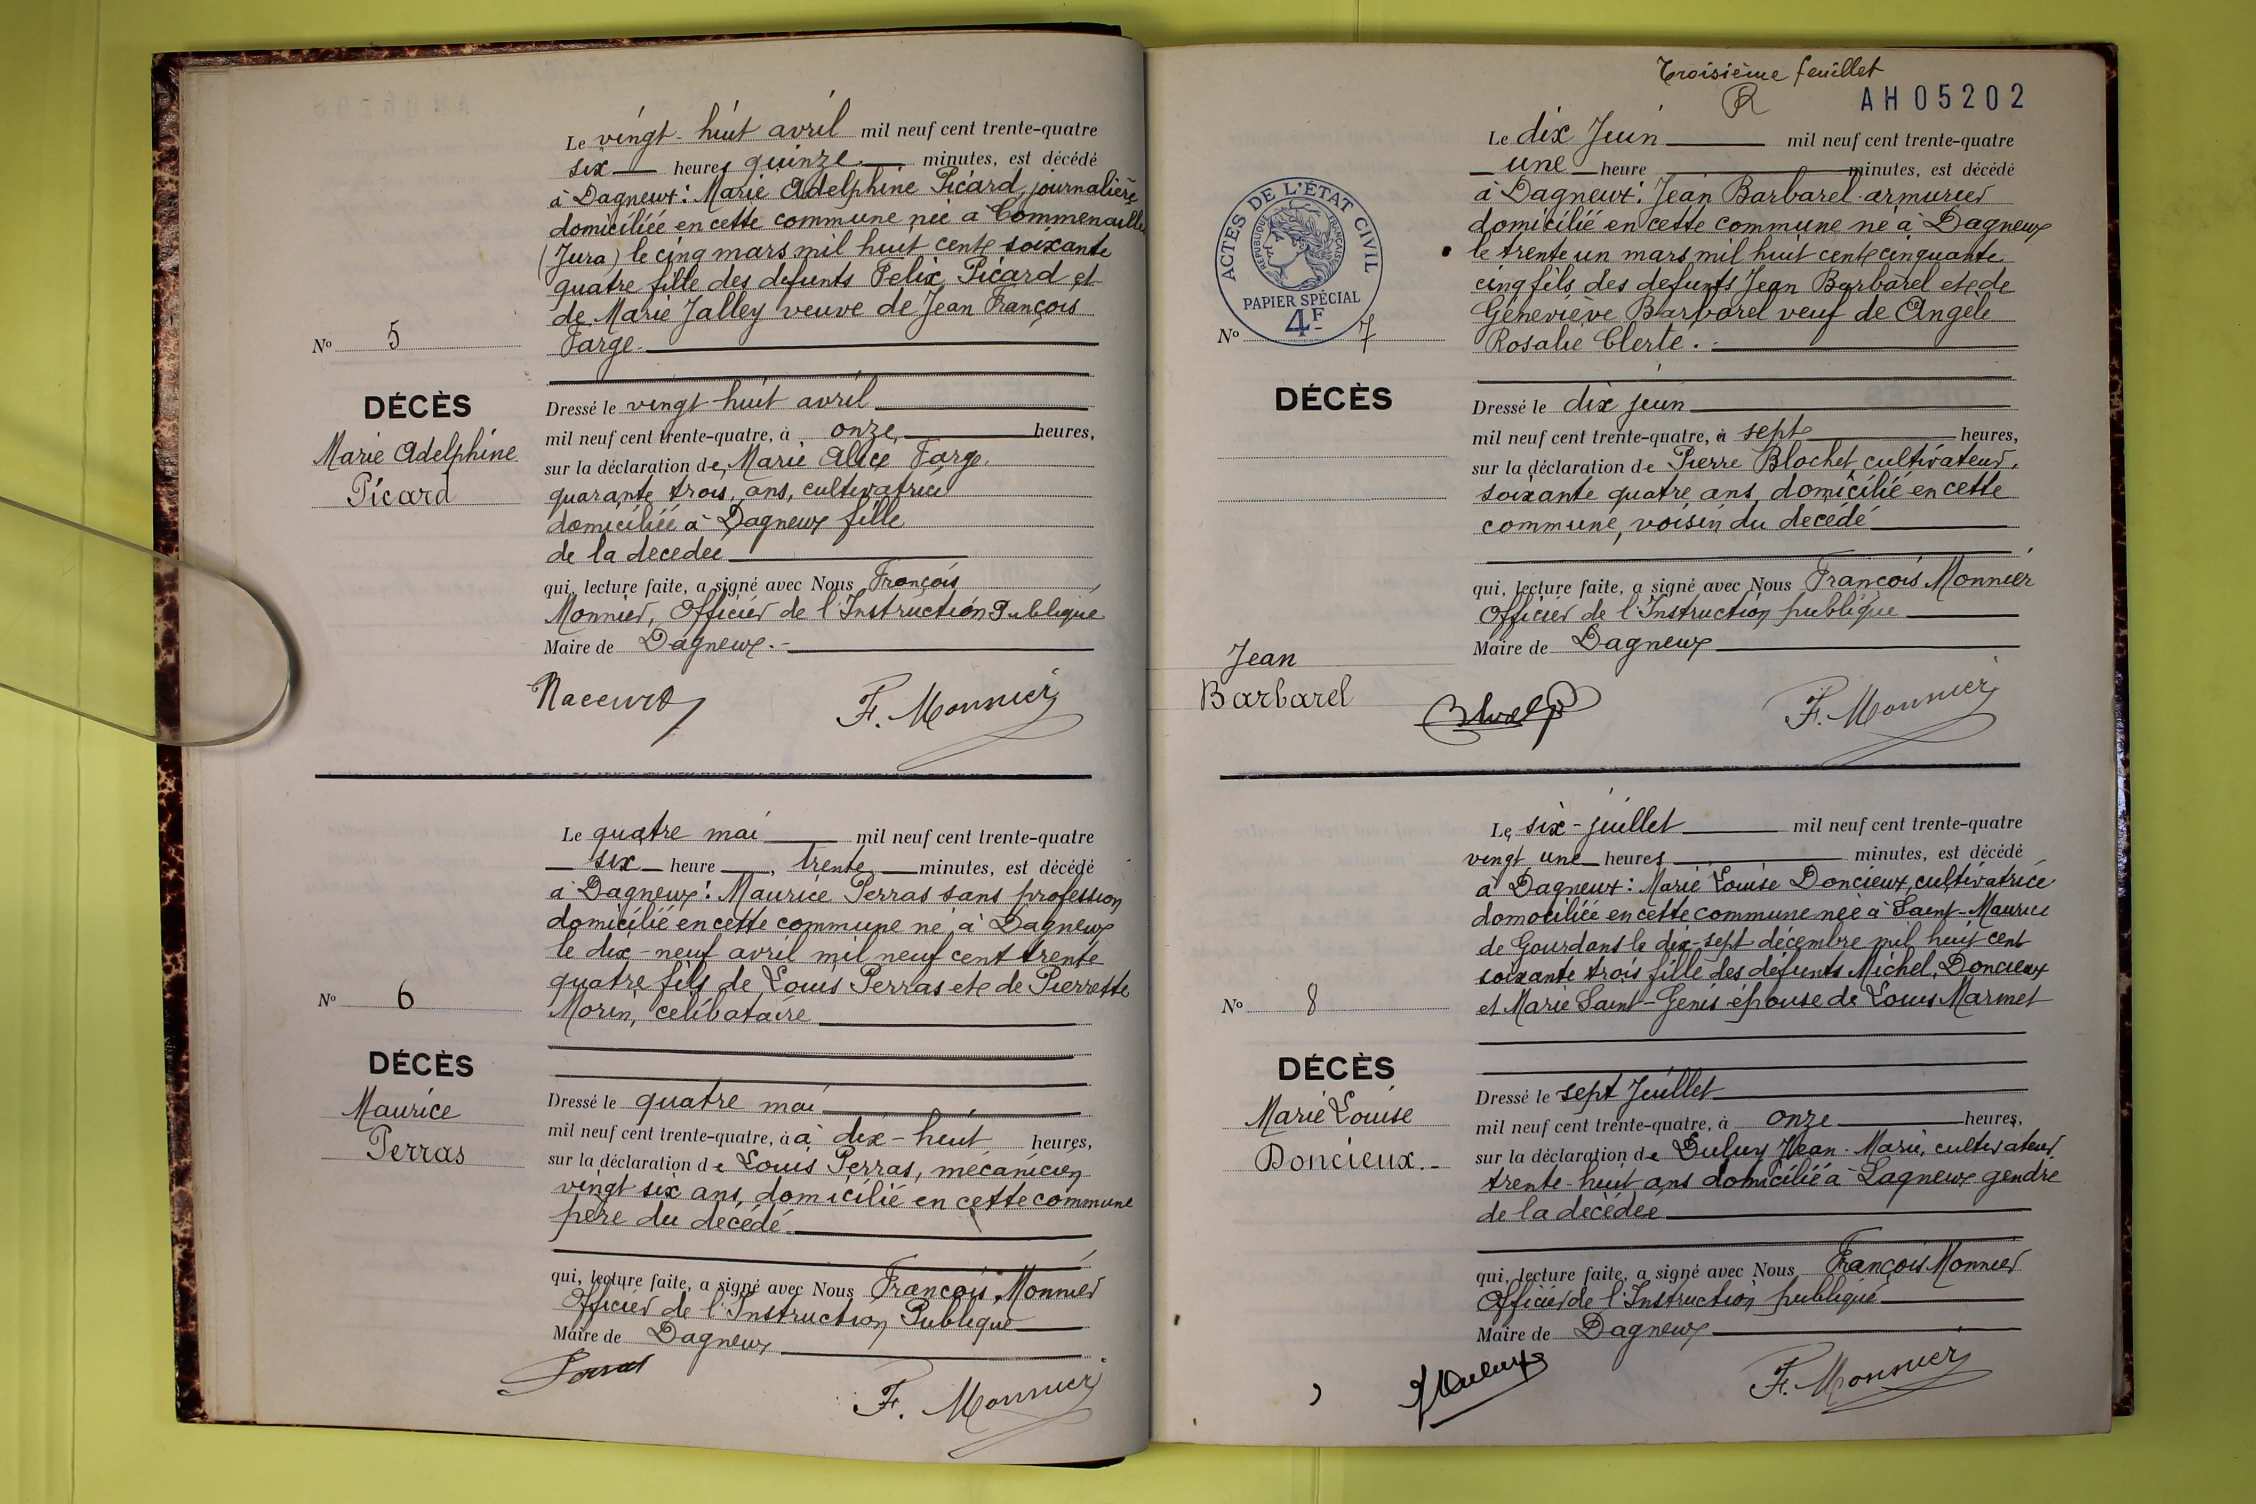 Le vingt-huit avril mil neuf cent trente-quatre
six heures quinze minutes, est décédé
à Dagneux : Marie Adelphine Picard, journalière
domiciliée en cette commune née à Commenailles
(Jura) le cinq mars mil huit cent soixante
quatre fille des defunts Felix Picard et
de Marie Jalley veuve de Jean François
Farge.
No 5
DÉCÈS
Marie Adelphine
Picard
Dressé le vingt-huit avril
mil neuf cent trente-quatre, à onze heures,
sur la déclaration de Marie Alice Farge
quarante trois ans, cultivatrice
domiciliée à Dagneux fille
de la decedee
qui, lecture faite, a signé avec Nous François
Monnier, Officier de l'Instruction Publique
Maire de Dagneux.-
F. Monnier
Le quatre mai mil neuf cent trente-quatre
six heure, trente minutes, est décédé
à Dagneux : Maurice Perras sans profession
domicilié en cette commune né à Dagneux
le dix-neuf avril mil neuf cent trente
quatre fils de Louis Perras et de Pierrette
Morin, célibataire
No 6
DÉCÈS
Maurice
Perras
Dressé le quatre mai
mil neuf cent trente-quatre, à à dix-huit heures,
sur la déclaration de Louis Perras, mécanicien
vingt six ans, domicilié en cette commune
père du décédé.
qui, lecture faite, a signé avec Nous François Monnier
Officier de l'Instruction Publique
Maire de Dagneux
Perras
F. Monnier
Troisième feuillet
AH05202
ACTES DE L'ÉTAT CIVIL
RÉPUBLIQUE FRANÇAISE
PAPIER SPÉCIAL
4F
Le dix Juin mil neuf cent trente-quatre
une heure minutes, est décédé
à Dagneux : Jean Barbarel armurier
domicilié en cette commune né à Dagneux
le trente un mars mil huit cent cinquante
cinq fils des defunts Jean Barbarel et de
Geneviève Barbarel veuf de Angèle
Rosalie Clerte.
No 7
DÉCÈS
Dressé le dix juin
mil neuf cent trente-quatre, à sept heures,
sur la déclaration de Pierre Blochet, cultivateur,
soixante quatre ans, domicilié en cette
commune, voisin du decédé
qui, lecture faite, a signé avec Nous François Monnier
Officier de l'Instruction publique
Maire de Dagneux
Jean
Barbarel
F. Monnier
Le six-juillet mil neuf cent trente-quatre
vingt une heures minutes, est décédé
à Dagneux : Marie Louise Doncieux, cultivatrice
domociliée en cette commune née à Saint-Maurice
de Gourdans le dix-sept décembre mil huit cent
soixante trois fille des défunts Michel Doncieux
et Marie Saint-Genis épouse de Louis Marmet
No 8
DÉCÈS
Marie Louise
Doncieux.-
Dressé le sept Juillet
mil neuf cent trente-quatre, à onze heures,
sur la déclaration de Jean-Marie, cultivateur
trente-huit ans domicilié à Dagneux gendre
de la décédée
qui, lecture faite, a signé avec Nous François Monnier
Officier de l'Instruction publique
Maire de Dagneux
F. Monnier